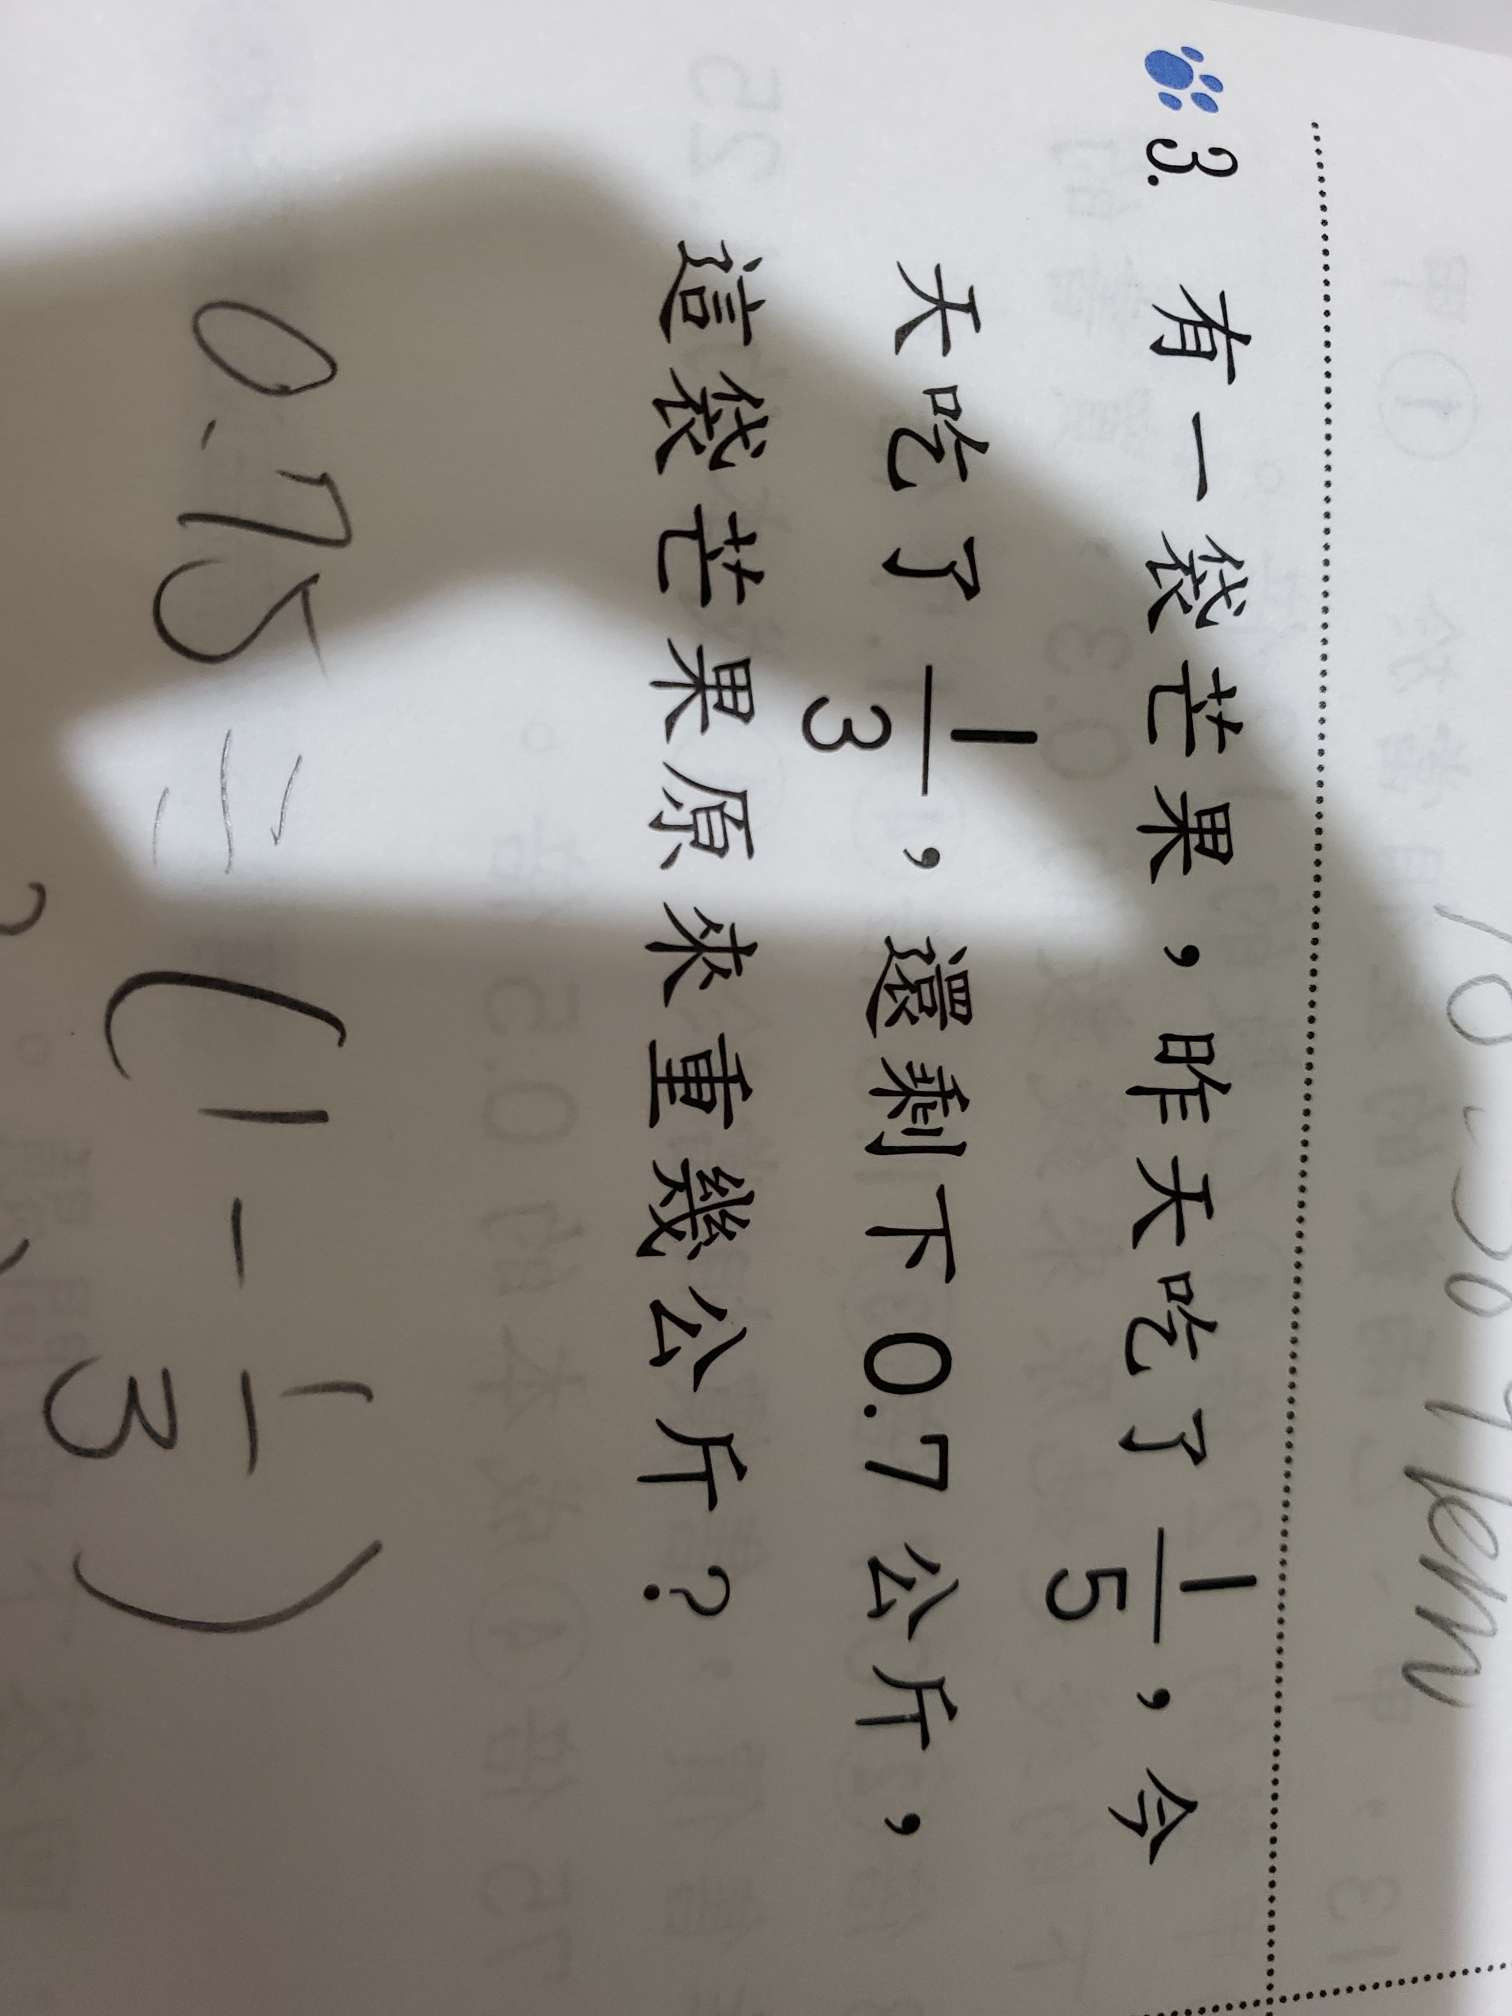 3. 有一袋芒果，昨天吃了 1/5，今
天吃了 1/3，還剩下 0.7 公斤，
這袋芒果原來重幾公斤？
0.75 = (1 - 1/3)